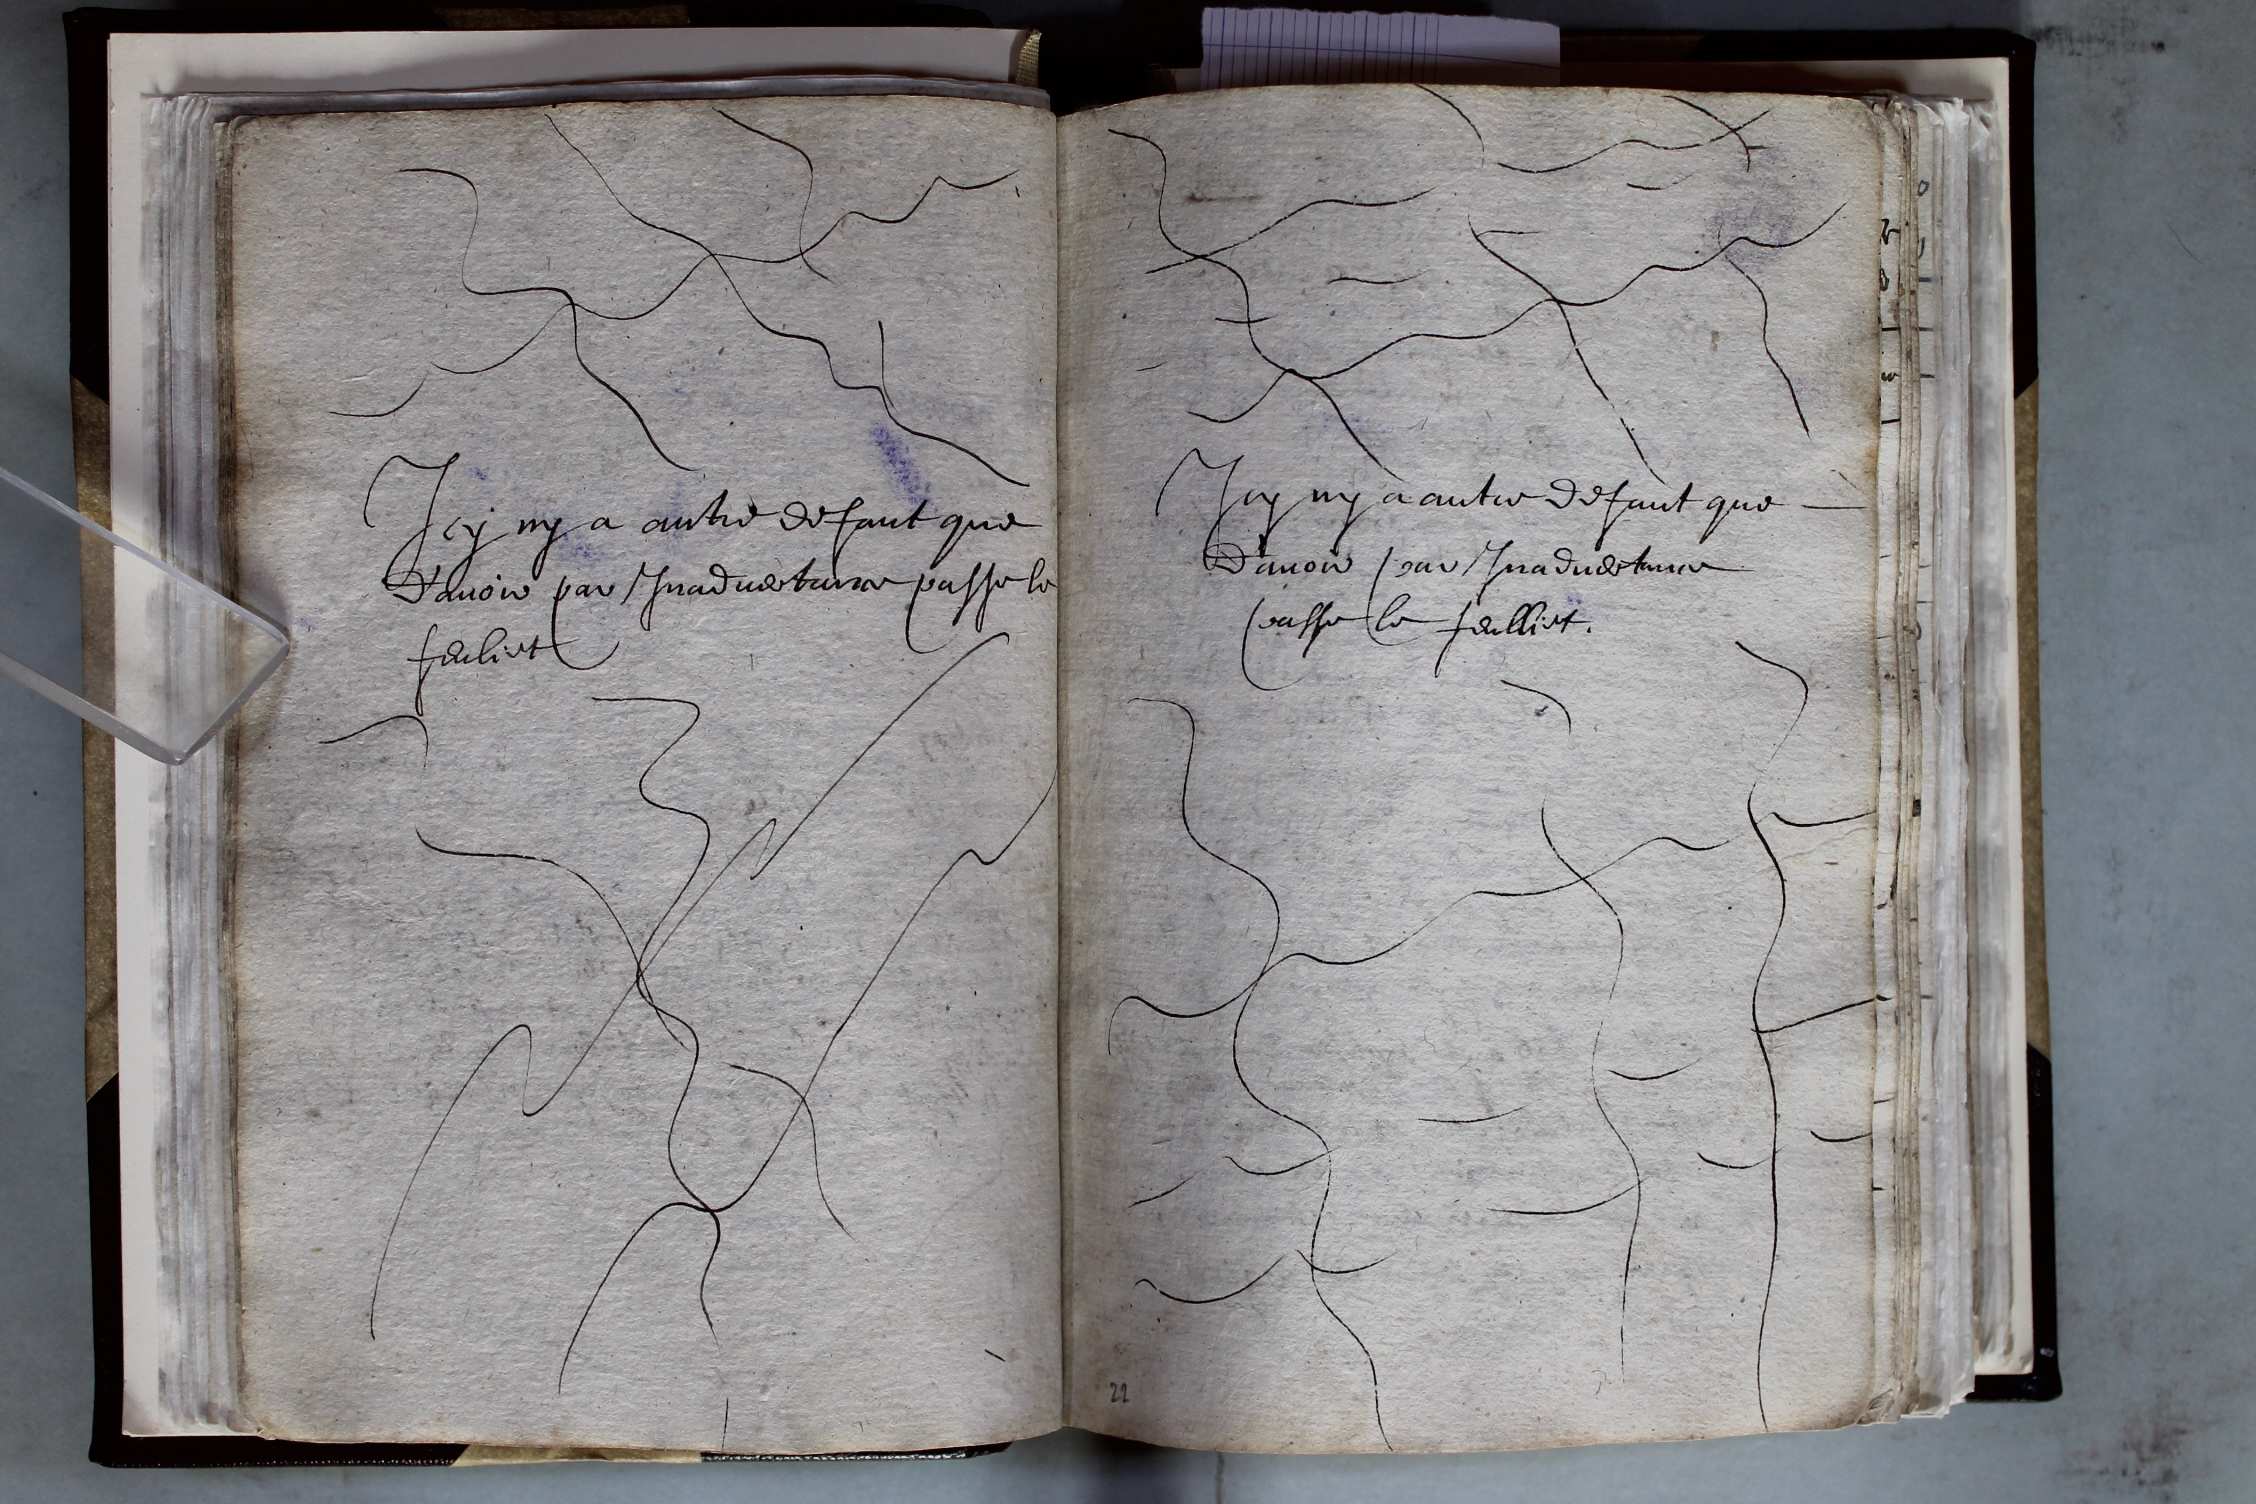 Icy ny a autre defaut que
D'auoir par Inaduertance passe le
feuliet
Icy ny a autre defaut que —
D'auoir par Inaduertance
passe le feulliet.
22